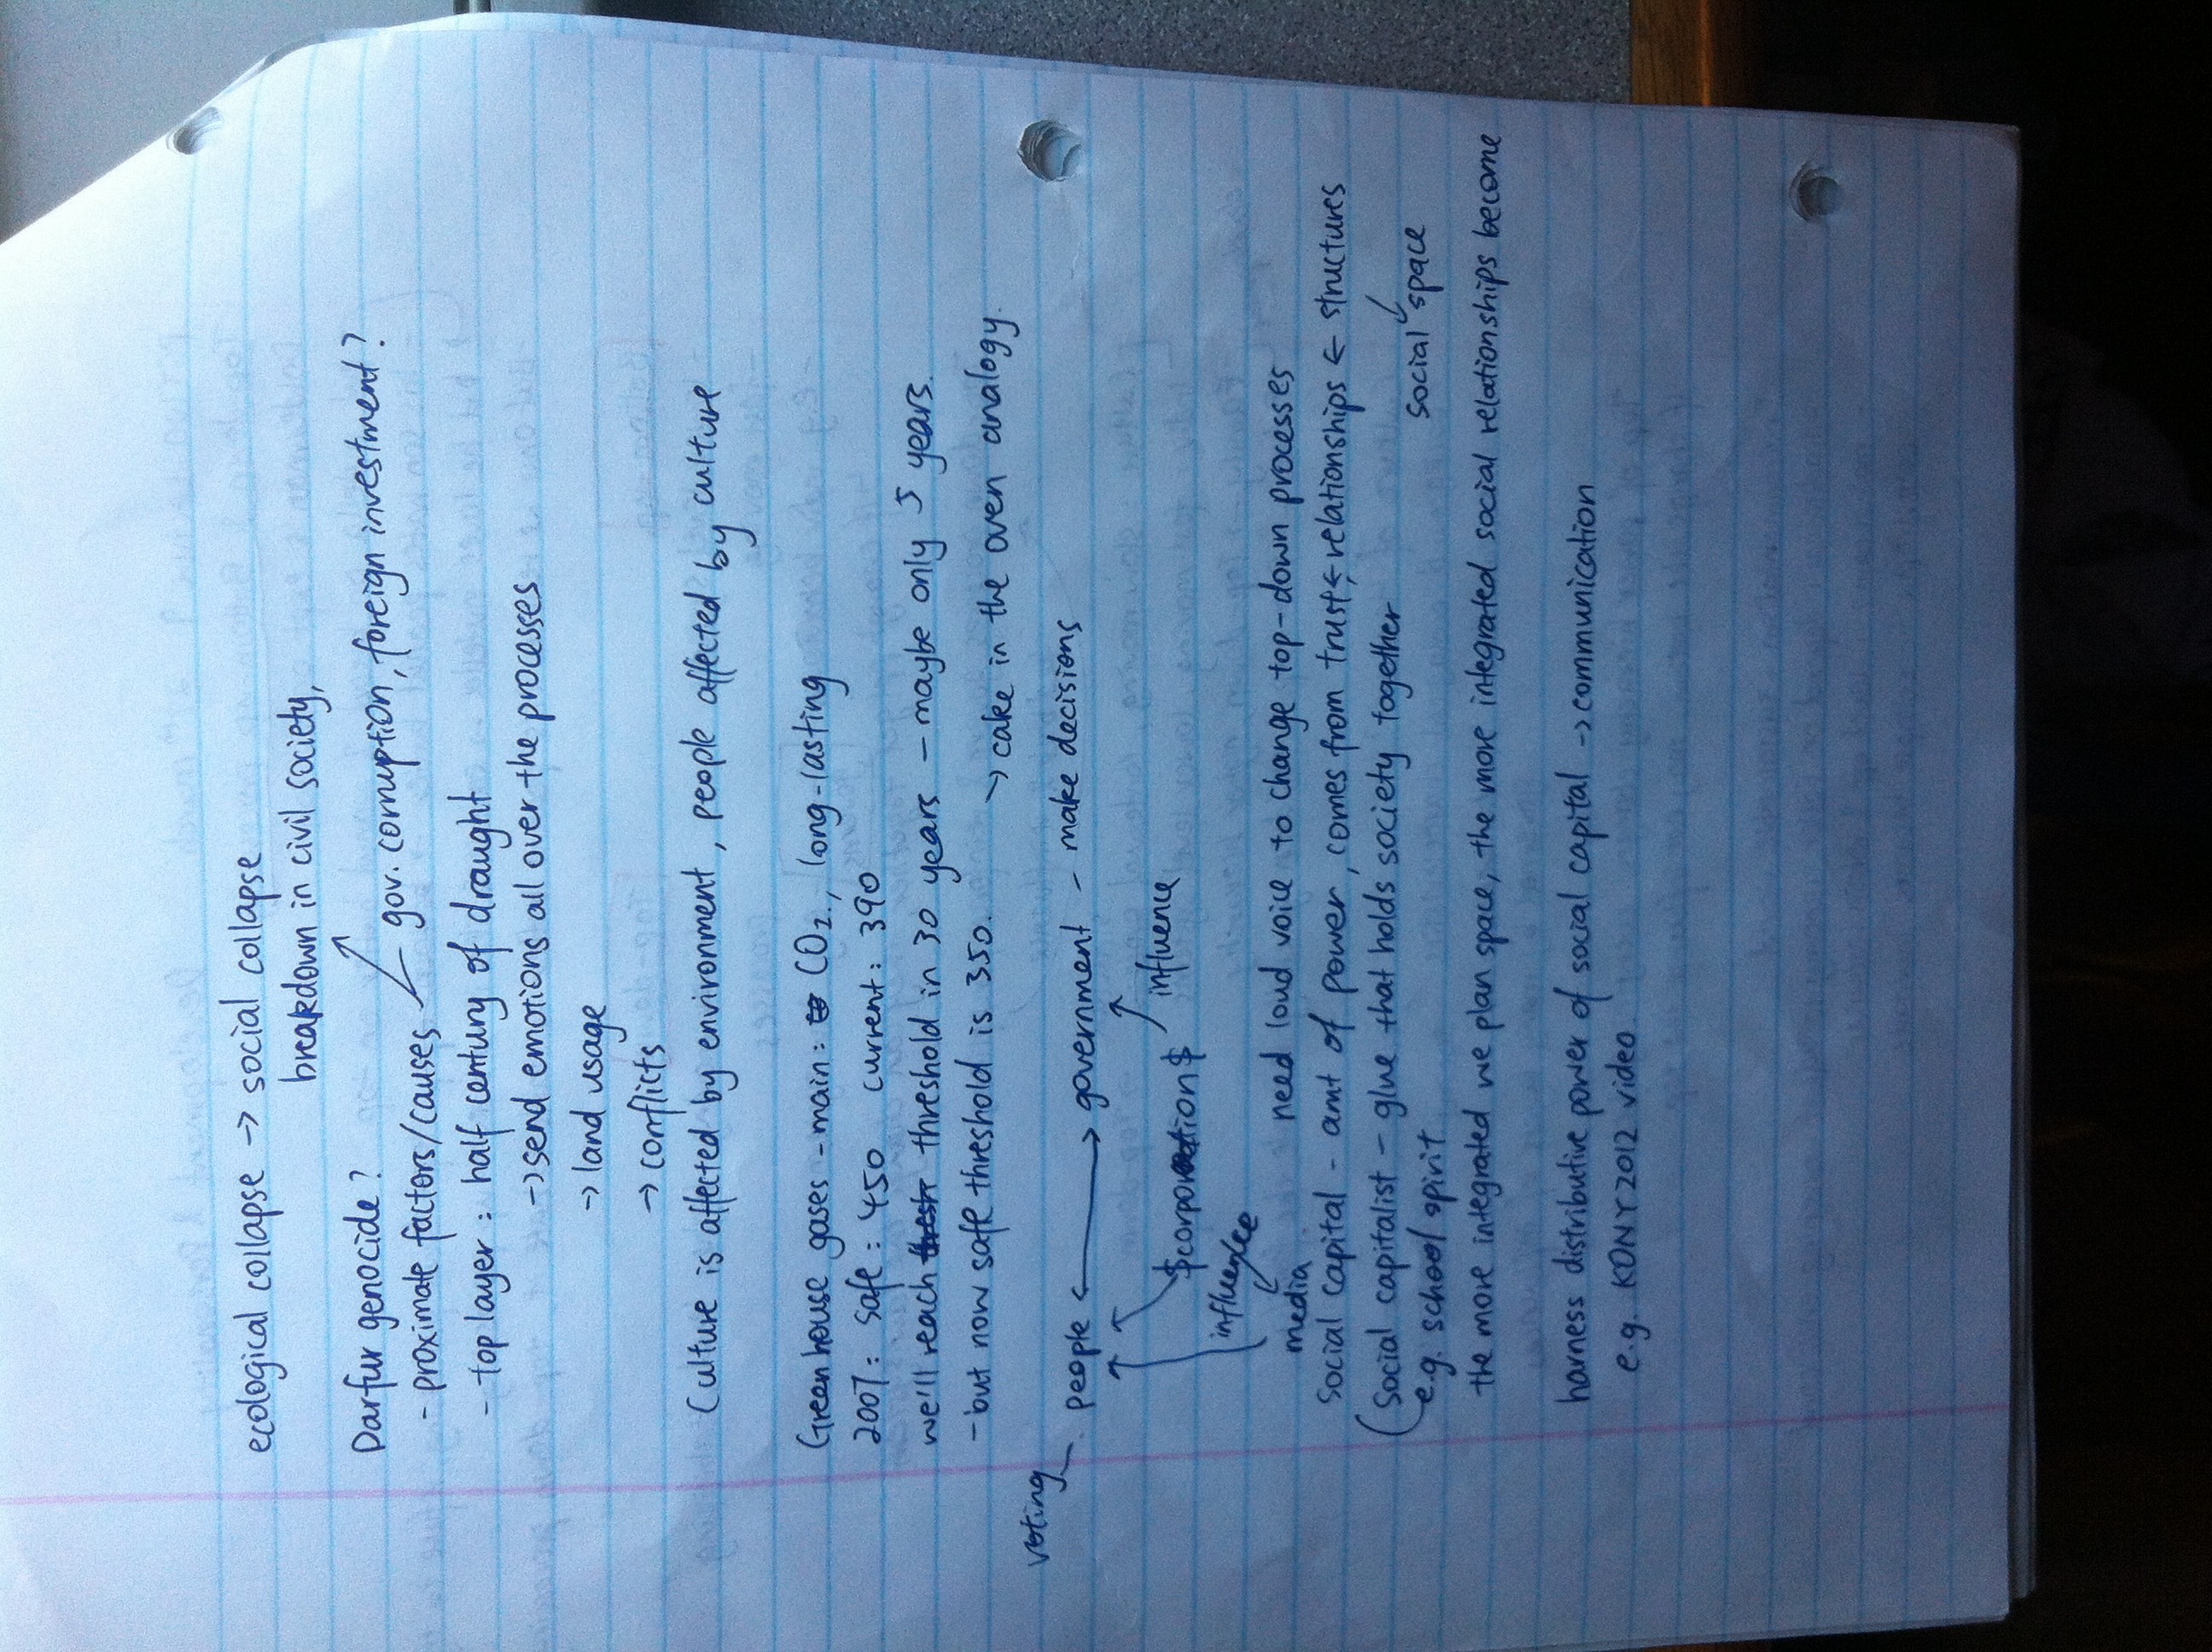 ecological collapse → social collapse
breakdown in civil society,
Darfur genocide?
- proximate factors/causes ← gov. corruption, foreign investment?
- top layer: half century of draught
→ send emotions all over the processes
→ land usage
→ conflicts
Culture is affected by environment, people affected by culture
Greenhouse gases - main: CO2, long-lasting
2007: safe: 450 current: 390
we'll reach thresh threshold in 30 years - maybe only 5 years.
- but now safe threshold is 350. → cake in the oven analogy.
voting
people ↔ government - make decisions
influence
$corporation$
influence
media
need loud voice to change top-down processes
Social capital - amt of power, comes from trust ← relationships ← structures
(Social capitalist - glue that holds society together
social space
e.g. school spirit
the more integrated we plan space, the more integrated social relationships become
harness distributive power of social capital → communication
e.g. KONY2012 video